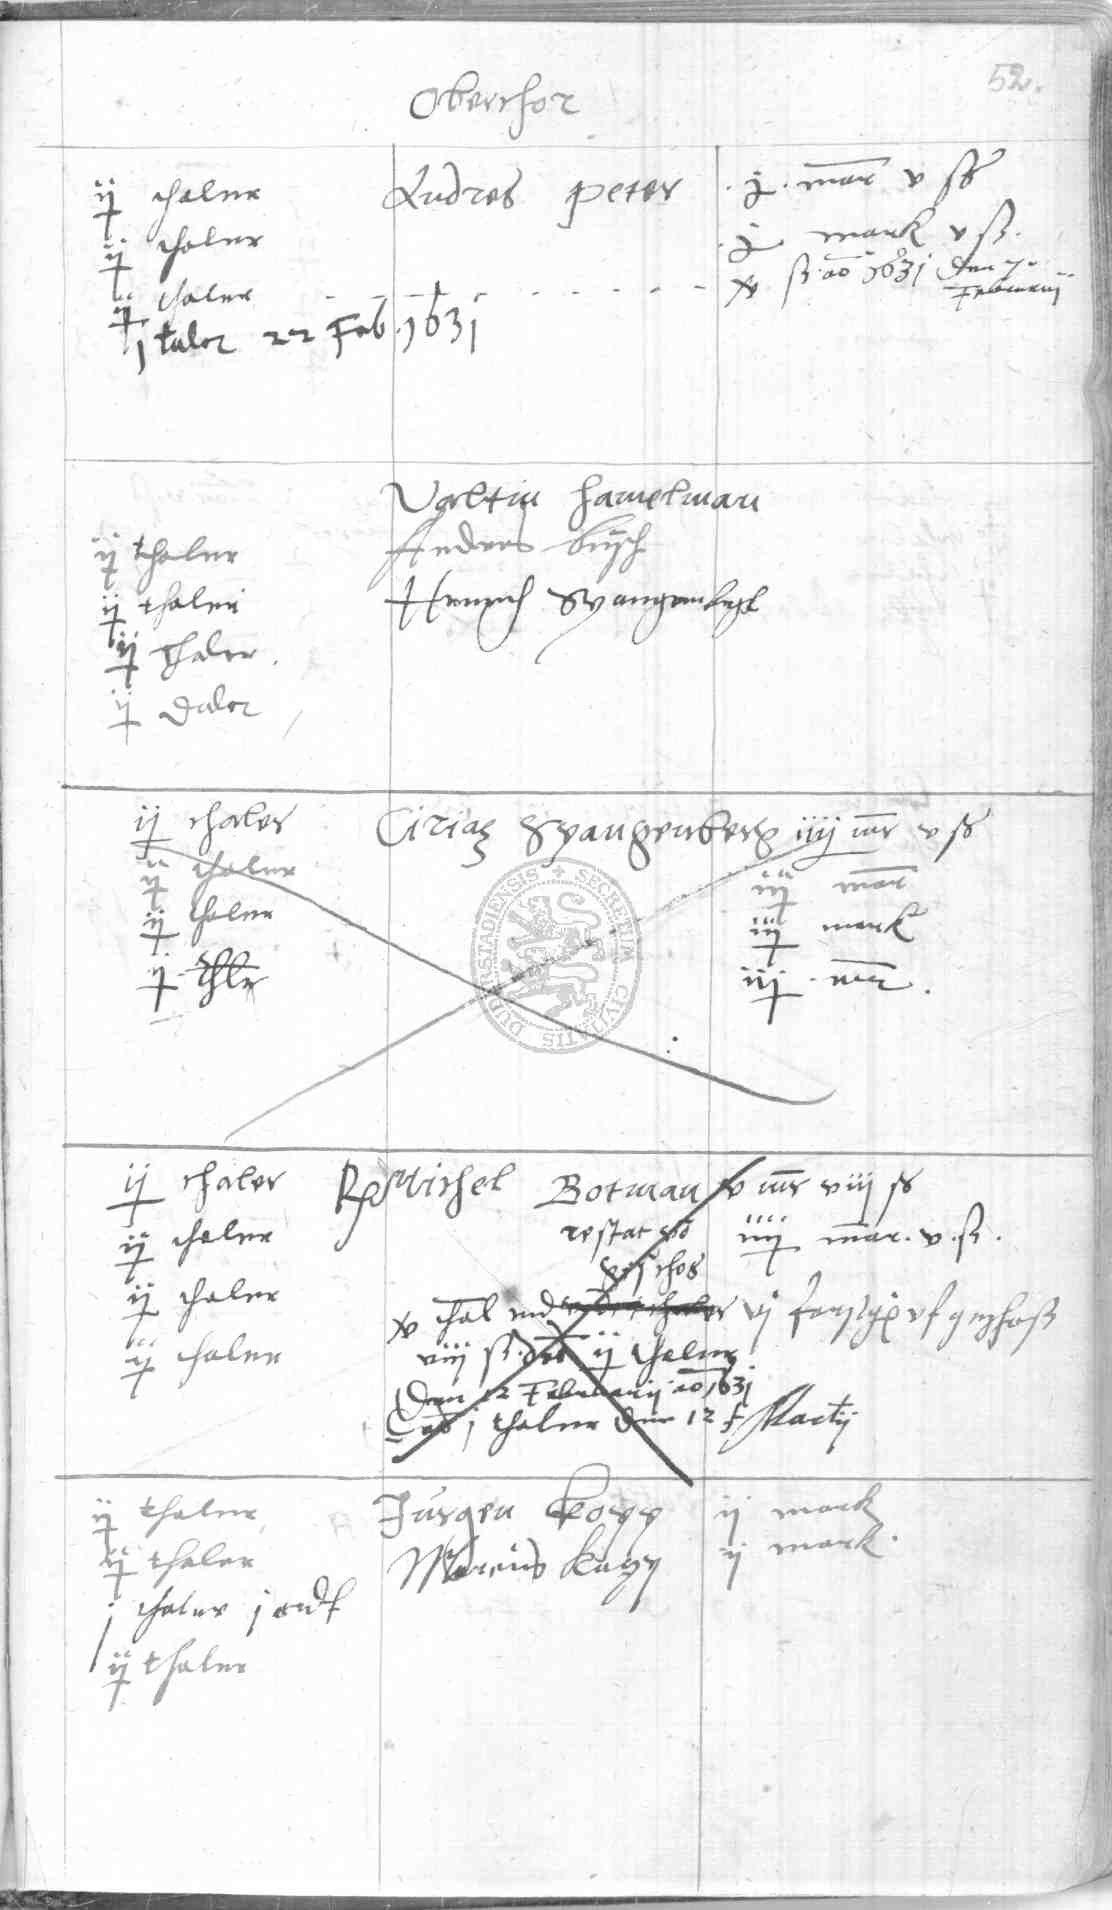 52.
Oberthor
ij thaler Andres Peter j mar v ß
ij thaler j mark v ß.
ij thaler x ß ao 1631 den 7
Februarij
j taler 22 Feb. 1631
Valtin Hamelman
ij thaler Andres Busch
ij thaler Henrich Spangenbergk
ij thaler
ij daler
ij thaler Ciriax Spangenbergk iiij mr v ß
ij thaler iij mar
ij thaler iij mark
ij thlr iij mr.
ij thaler Michel Botman v mr viij ß
ij thaler restat iiij mar. v. ß.
schos
ij thaler x thal vnd vj vf geschoß
ij thaler viij ß. ij thaler
Den 12 Februarij ao 1631
j thaler den 12 Martij
ij thaler Jurgen Kopp ij mark
ij thaler Marcus ij mark.
j thaler j ordt
ij thaler
SECRETUM CIVITATIS DUDERSTADIENSIS